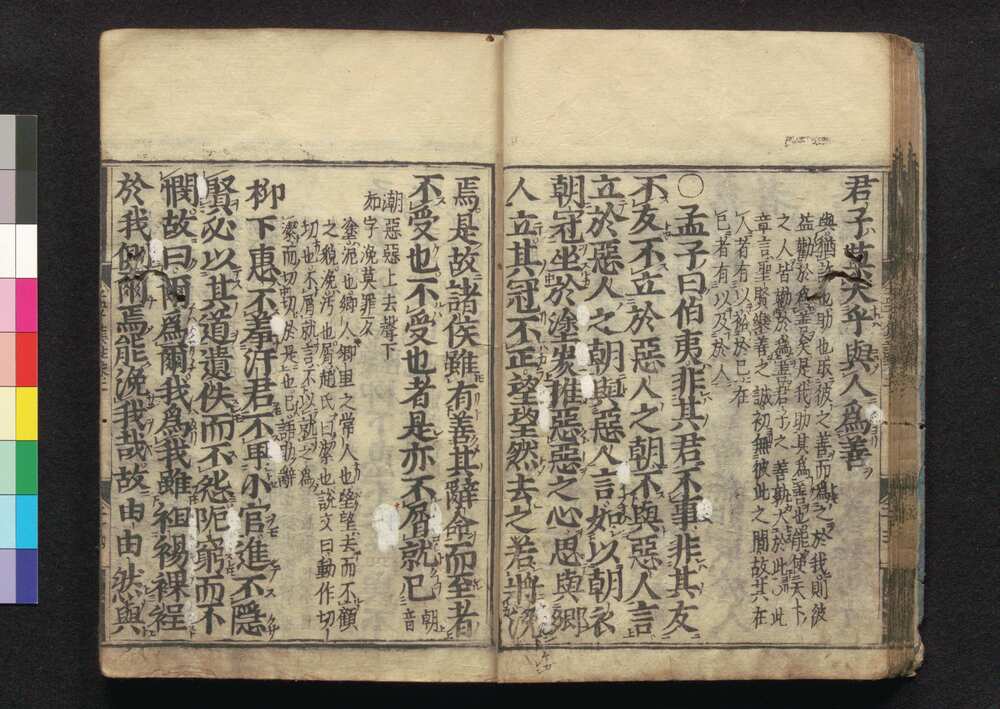 君子莫大乎與人為善
與猶許也助也取彼之善而為之於我則彼
益勸於為善矣是我助其為善也能使天下
之人皆勸於為善君子之善孰大於此此
章言聖賢樂善之誠初無彼此之間故其在
人者有以裕於己在
己者有以及於人
〇孟子曰伯夷非其君不事非其友
不友不立於惡人之朝不與惡人言
立於惡人之朝與惡人言如以朝衣
朝冠坐於塗炭推惡惡之心思與鄉
人立其冠不正望望然去之若將浼
焉是故諸侯雖有善其辭命而至者
不受也不受也者是亦不屑就已
朝音
潮惡惡上去聲下
如字浼莫罪反
塗泥也鄉人鄉里之常人也望望去而不顧
之貌浼汚也屑趙氏曰潔也說文曰動作切
切也不屑就言不以就之為
潔而切切於是也已語助辭
柳下惠不羞汙君不卑小官進不隱
賢必以其道遺佚而不怨阨窮而不
憫故曰爾為爾我為我雖袒裼裸裎
於我側爾焉能浼我哉故由由然與